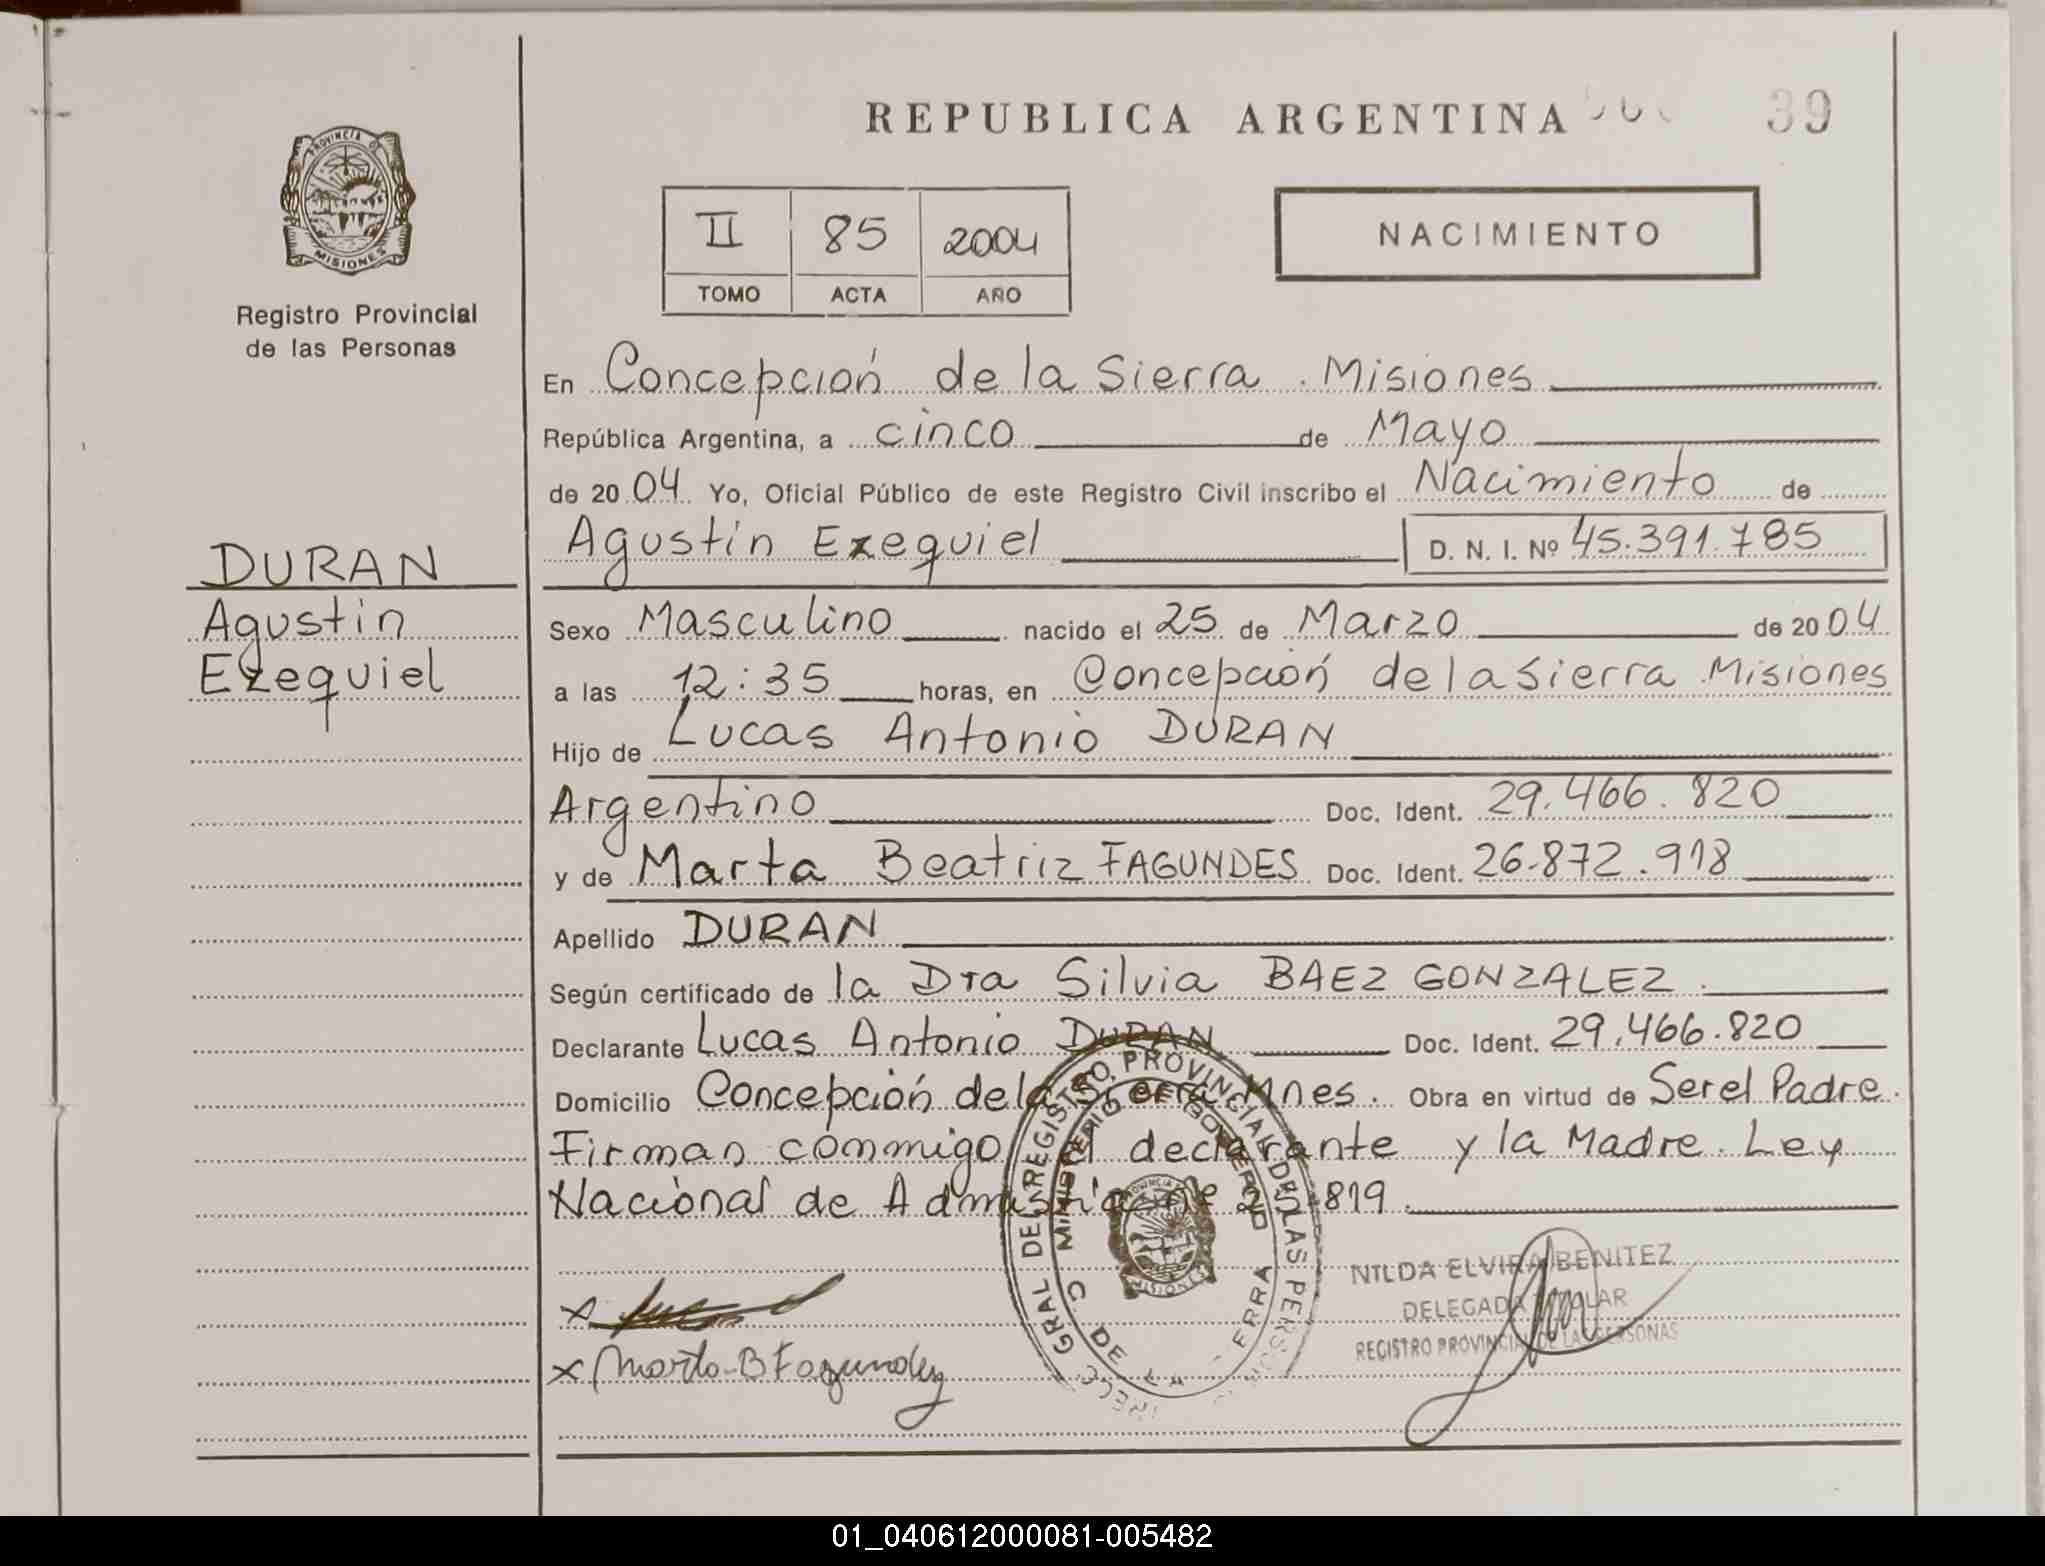 REPUBLICA ARGENTINA
39
PROVINCIA DE
MISIONES
Registro Provincial
de las Personas
II 85 2004
TOMO ACTA AÑO
NACIMIENTO
En Concepción de la Sierra. Misiones
República Argentina, a cinco de Mayo
de 2004 Yo, Oficial Público de este Registro Civil inscribo el Nacimiento de
Agustin Ezequiel D. N. I. Nº 45.391.785
DURAN
Agustin
Ezequiel
Sexo Masculino nacido el 25 de Marzo de 2004
a las 12:35 horas, en Concepción de la Sierra Misiones
Hijo de Lucas Antonio DURAN
Argentino Doc. Ident. 29.466.820
y de Marta Beatriz FAGUNDES Doc. Ident. 26.872.918
Apellido DURAN
Según certificado de la Dra Silvia BAEZ GONZALEZ.
Declarante Lucas Antonio DURAN Doc. Ident. 29.466.820
Domicilio Concepción de la Sierra Mnes. Obra en virtud de Ser el Padre.
Firman conmigo el declarante y la Madre. Ley
Nacional de Admistría nº 25.819.
GRAL DEL REGISTRO PROVINCIAL DE LAS PERSONAS
MINISTERIO DE GOBIERNO
C. DE LA
MISIONES
NILDA ELVIRA BENITEZ
DELEGADA TITULAR
REGISTRO PROVINCIAL DE LAS PERSONAS
x
x Marta B Fagundez
01_040612000081-005482